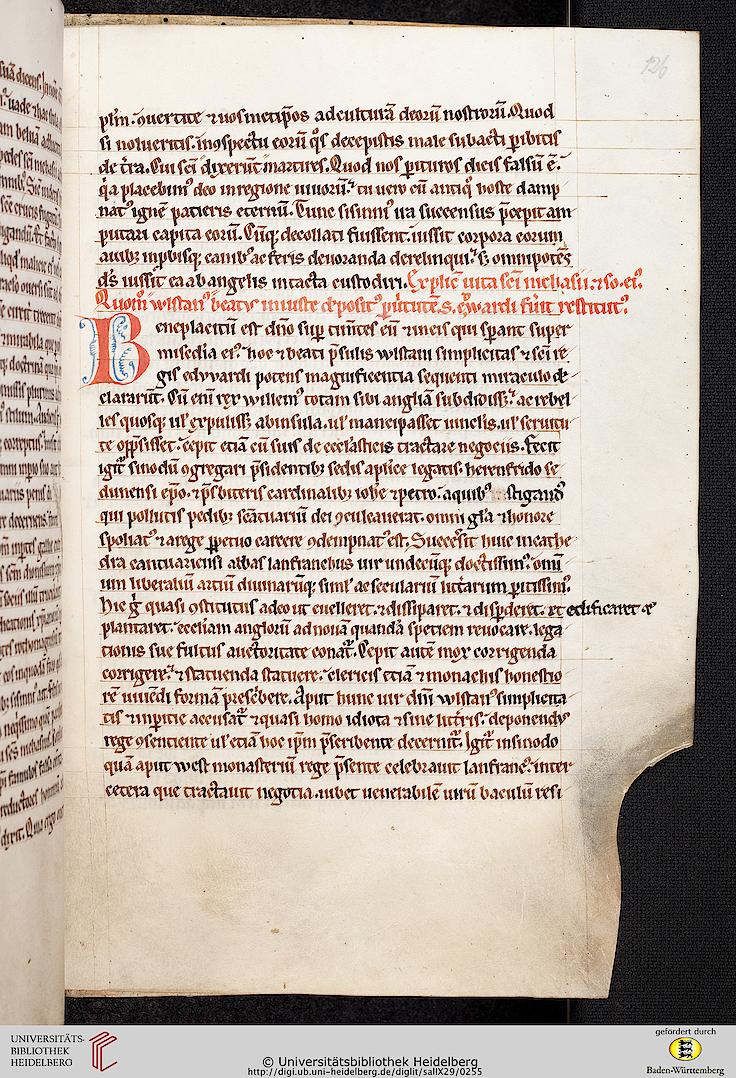 126
pl̅m. ꝯuertite ⁊ uosmetip̅os ad culturā deorū nostrorū. Quod
si nolueritis. in ꝯspectu eorū q̅s decepistis male subacti ꝑibitis
de t̅ra. Cui sc̅i dixerūt martires. Quod nos ꝑituros dicis falsū ē.
q̅a placebimꝰ deo in regione uiuorū. tu uero cū antiq̅ hoste damp
natꝰ ignē pacieris eternū. Tunc sisinniꝰ ira succensus p̅cepit am
putari capita eorū. Cūq; decollati fuissent. iussit corpora eorum
auib; inpbisq; canib; ac feris deuoranda derelinqui. s; omnipotēs
d̅s iussit ea ab angelis intacta custodiri. Explic̅ uita sc̅i
Quom̅ wlstanꝰ beatꝰ iniuste depositꝰ restitutꝰ.
Beneplacitū est dn̅o sup̱ timētes eū ⁊ in eis qui sꝑant super
misedia eiꝰ. hoc ⁊ beati p̅sulis wlstani simplicitas ⁊ sc̅i re
gis edwardi potens magnificentia sequenti miraculo de
clararūt. Cū eni̅ rex willemꝰ totam sibi angliā subdidiss&. ac rebel
les quosq; ul̓ expuliss& ab insula. ul̓ mancipasset uinclis. ul̓ seruitu
te opp̅sisset. cepit etiā cū suis de eccl̅asticis tractare negociis. Fecit
igit̓ sinodū ꝯgregari p̅sidentib; sedis aplice legatis. herenfrido se
dunensi ep̅o. ⁊ p̅sbiteris cardinalib; ioh̅e ⁊ petro. a quibꝰ stigandꝰ
qui pollutis pedib; sc̅tuariū dei ꝯculcauerat. omni gl̅a ⁊ honore
spoliatꝰ a rege ꝑpetuo carcere ꝯdempnatꝰ est. Successit huic in cathe
dra cantuariensi abbas lanfrancus uir undecūq; doctissimꝰ. omi̅
um liberaliū artiū diuinarūq; siml̓ ac seculariū litt̓arum ꝑitissimꝰ.
Hic g̅ quasi ꝯstitutus a deo ut euelleret. ⁊ dissiparet. ⁊ disꝑderet. et edificaret ⁊
plantaret. eccl̅iam anglorū ad nouā quandā spetiem reuocare. lega
tionis sue fultus auctoritate conat̓. Cepit autē mox corrigenda
corrigere. ⁊ statuenda statuere. clericis etiā ⁊ monachis honestio
rē uiuēdi formā presc̓bere. Aput hunc uir dn̅i wlstanꝰ simplicita
tis ⁊ inꝑitie accusat̓ ⁊ quasi homo idiota ⁊ sine litt̓ris. deponendꝰ
rege ꝯsentiente ul̓ etiā hoc ip̅m p̅scribente decernit̓. Igit̓ in sinodo
quā aput west monasteriū rege p̅sente celebrauit lanfrancꝰ. inter
cetera que tractauit negotia. iubet uenerabilē uirū baculū resi
UNIVERSITÄTS-
BIBLIOTHEK
HEIDELBERG
© Universitätsbibliothek Heidelberg
http://digi.ub.uni-heidelberg.de/diglit/salIX29/0255
gefördert durch
Baden-Württemberg